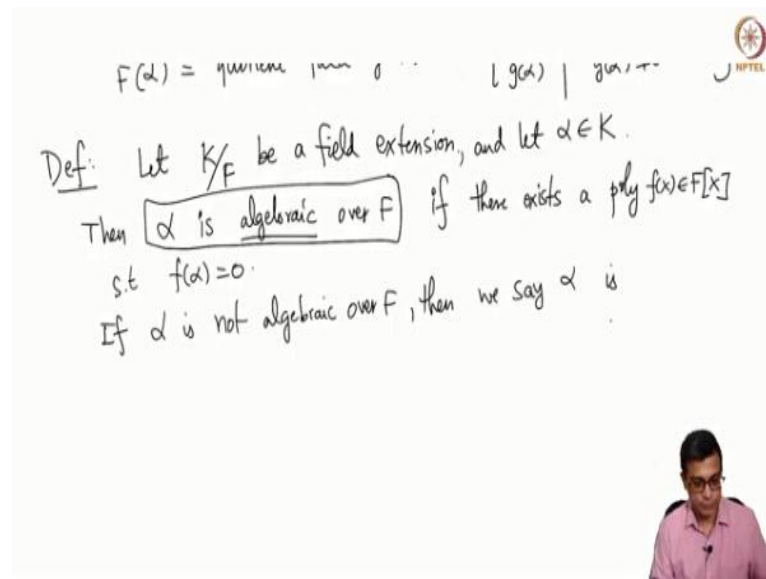 NPTEL
F(α) =
Def: Let K/F be a field extension, and let α ∈ K.
Then α is algebraic over F if there exists a poly f(x) ∈ F[X]
s.t f(α)=0.
If α is not algebraic over F, then we say α is